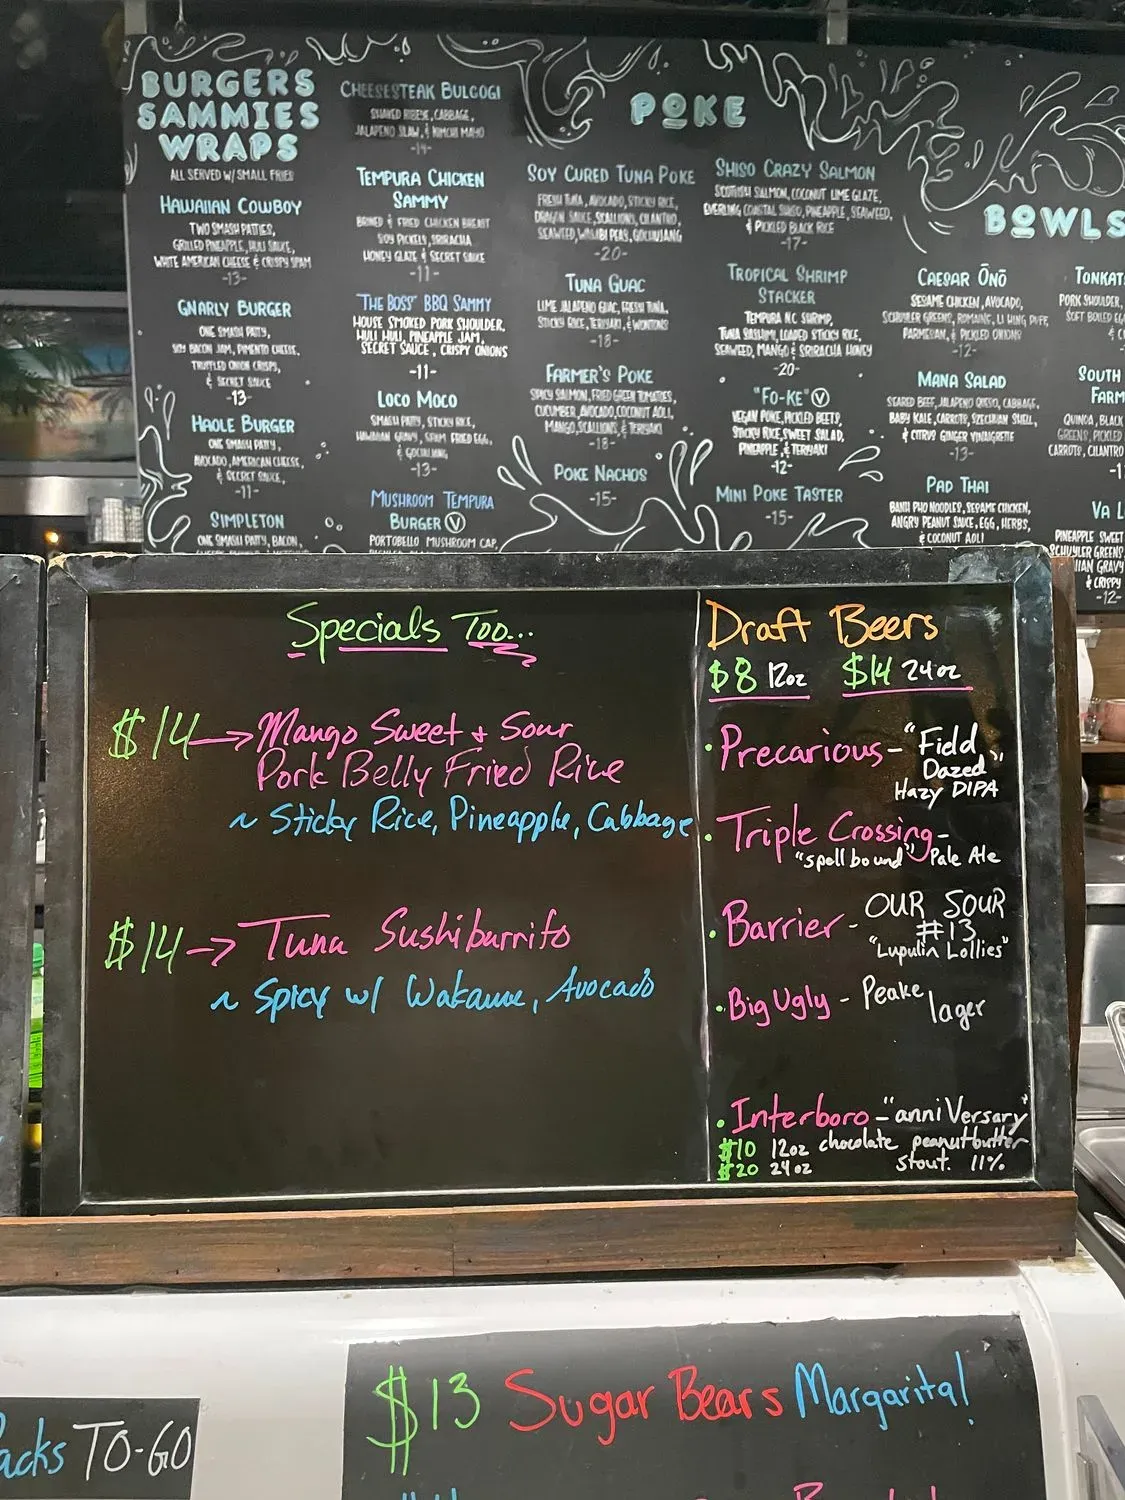 BURGERS
SAMMIES
WRAPS
ALL SERVED W/ SMALL FRIES
HAWAIIAN COWBOY
TWO SMASH PATTIES,
GRILLED PINEAPPLE, HULI SAUCE,
WHITE AMERICAN CHEESE & CRISPY SPAM
-13-
GNARLY BURGER
ONE SMASH PATTY,
SOY BACON JAM, PIMENTO CHEESE,
TRUFFLED ONION CRISPS,
& SECRET SAUCE
-13-
HAOLE BURGER
ONE SMASH PATTY,
AVOCADO, AMERICAN CHEESE,
& SECRET SAUCE,
-11-
SIMPLETON
ONE SMASH PATTY, BACON,
CHEESESTEAK BULGOGI
SHAVED RIBEYE, CABBAGE,
JALAPENO SLAW, & KIMCHI MAYO
-14-
TEMPURA CHICKEN
SAMMY
BRINED & FRIED CHICKEN BREAST
SOY PICKELS, SRIRACHA
HONEY GLAZE & SECRET SAUCE
-11-
THE BOSS' BBQ SAMMY
HOUSE SMOKED PORK SHOULDER,
HULI HULI, PINEAPPLE JAM,
SECRET SAUCE, CRISPY ONIONS
-11-
LOCO MOCO
SMASH PATTY, STICKY RICE,
HAWAIIAN GRAVY, SPAM FRIED EGG,
& GOCHUJANG
-13-
MUSHROOM TEMPURA
BURGER V
PORTOBELLO MUSHROOM CAP,
POKE
SOY CURED TUNA POKE
FRESH TUNA, AVOCADO, STICKY RICE,
DRAGON SAUCE, SCALLIONS, CILANTRO,
SEAWEED, WASABI PEAS, GOCHUJANG
-20-
TUNA GUAC
LIME JALAPENO GUAC, FRESH TUNA,
STICKY RICE, TERIYAKI, & WONTONS
-18-
FARMER'S POKE
SPICY SALMON, FRIED GREEN TOMATOES,
CUCUMBER, AVOCADO, COCONUT AOLI,
MANGO, SCALLIONS & TERIYAKI
-18-
POKE NACHOS
-15-
SHISO CRAZY SALMON
SCOTTISH SALMON, COCONUT LIME GLAZE,
COASTAL SHISO, PINEAPPLE, SEAWEED,
& PICKLED BLACK RICE
-17-
TROPICAL SHRIMP
STACKER
TEMPURA NC SHRIMP,
TUNA SASHIMI, LOADED STICKY RICE,
SEAWEED, MANGO & SRIRACHA HONEY
-20-
"FO-KE" V
VEGAN POKE, PICKLED BEETS,
STICKY RICE, SWEET SALAD,
PINEAPPLE, & TERIYAKI
-12-
MINI POKE TASTER
-15-
BOWLS
CAESAR ŌNŌ
SESAME CHICKEN, AVOCADO,
SCHUYLER GREENS, ROMAINS, LI HING PUFF,
PARMESAN, & PICKLED ONIONS
-12-
MANA SALAD
SEARED BEEF, JALAPENO QUESO, CABBAGE,
BABY KALE, CARROTS, SZECHUAN SHELL,
& CITRUS GINGER VINAIGRETTE
-13-
PAD THAI
BANH PHO NOODLES, SESAME CHICKEN,
ANGRY PEANUT SAUCE, EGG, HERBS,
& COCONUT AOLI
TONKAT
PORK SHOULDER,
SOFT BOILED EG
& C
SOUTH
FARM
QUINOA, BLACK
GREENS, PICKLED
CARROTS, CILANTRO
VA L
PINEAPPLE SWEET
SCHUYLER GREENS
IIAN GRAVY
& CRISPY
-12-
Specials Too...
$14 → Mango Sweet + Sour
Pork Belly Fried Rice
~ Sticky Rice, Pineapple, Cabbage
$14 → Tuna Sushiburrito
~ Spicy w/ Wakame, Avocado
Draft Beers
$8 12oz $14 24oz
• Precarious - "Field
Dazed"
Hazy DIPA
• Triple Crossing -
"spellbound" Pale Ale
• Barrier - OUR SOUR
#13
"Lupulin Lollies"
• Big Ugly - Peake
lager
• Interboro - "anniVersary"
$10 12oz chocolate peanutbutter
$20 24oz stout. 11%
acks TO-GO
$13 Sugar Bears Margarita!